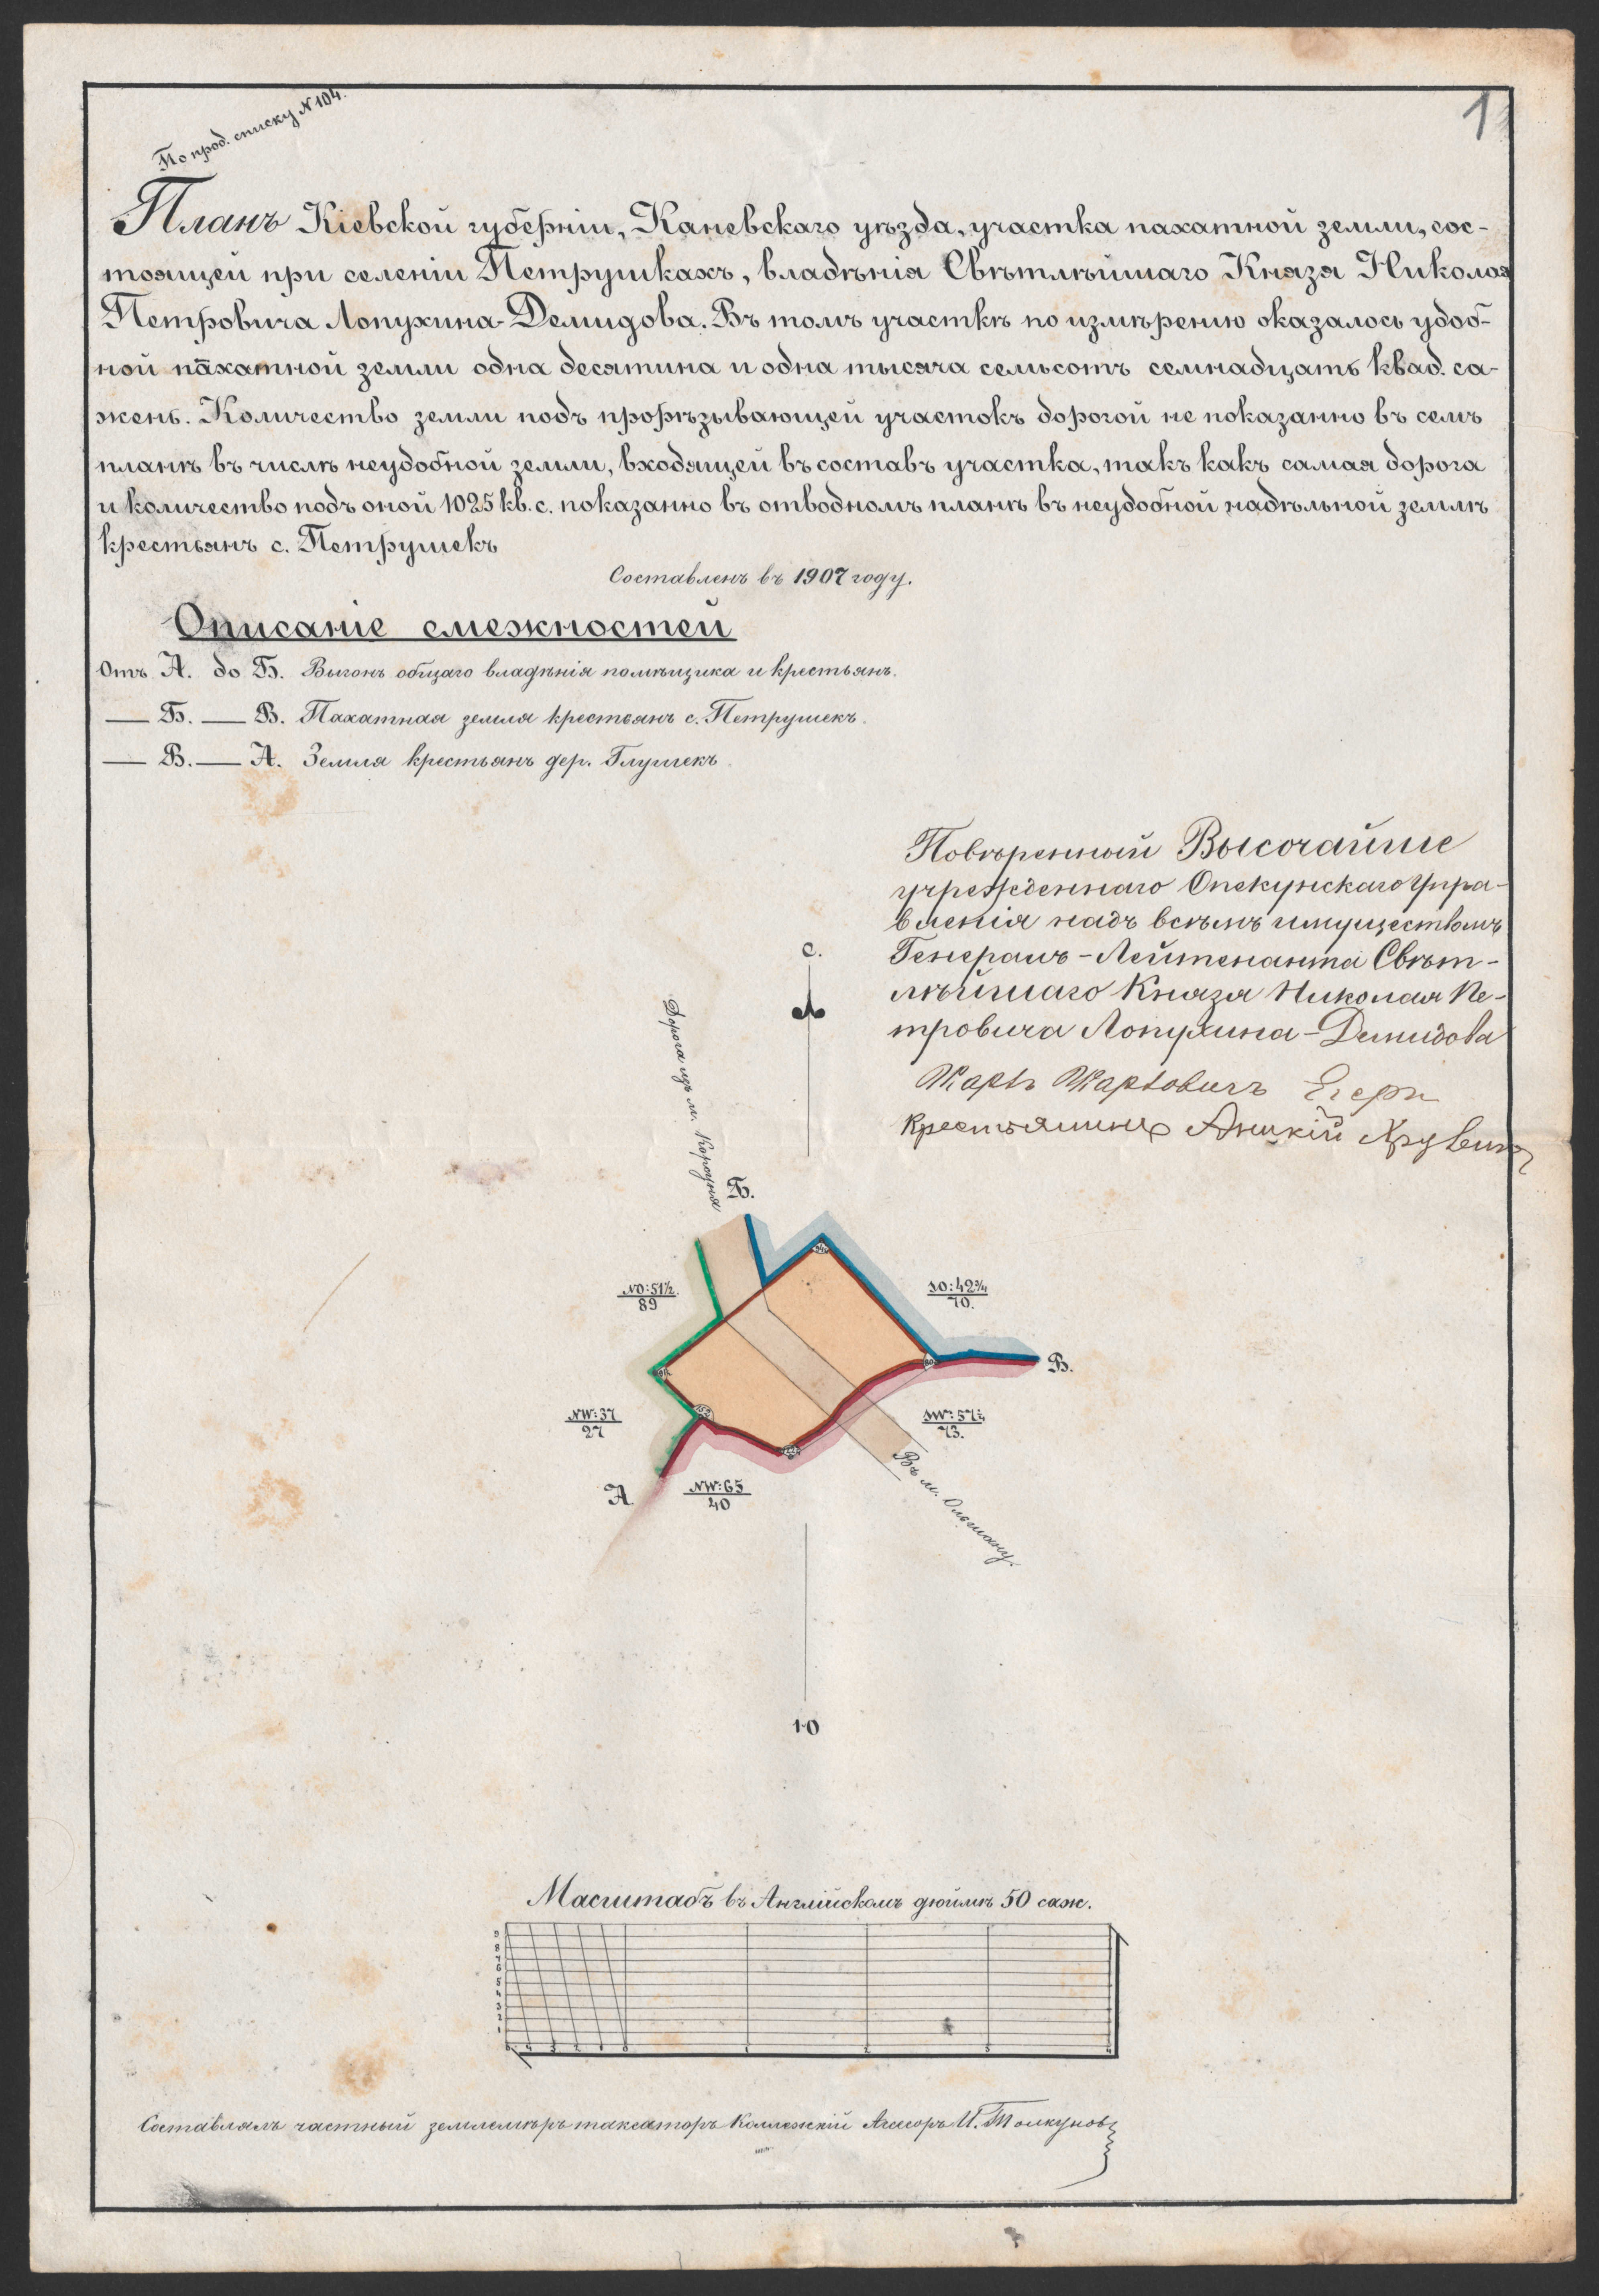 По прод. списку N 104.
1
Планъ Кіевской губерніи, Каневскаго уѣзда, участка пахатной земли, сос-
тоящей при селеніи Петрушкахъ, владѣнія Свѣтлѣйшаго Князя Николая
Петровича Лопухина-Демидова. Въ томъ участкѣ по измѣренію оказалось удоб-
ной пахатной земли одна десятина и одна тысяча семьсотъ семнадцать квад. са-
жень. Количество земли подъ прорѣзывающей участокъ дорогой не показанно въ семъ
планѣ въ числѣ неудобной земли, входящей въ составъ участка, такъ какъ самая дорога
и количество подъ оной 1025 кв. с. показанно въ отводномъ планѣ въ неудобной надѣльной землѣ
крестьянъ с. Петрушекъ
Составленъ въ 1907 году.
Описаніе смежностей
Отъ А. до Б. Выгонъ общаго владѣнія помѣщика и крестьянъ.
— Б. — В. Пахатная земля крестьянъ с. Петрушекъ.
— В. — А. Земля крестьянъ дер. Глушекъ.
Повѣренный Высочайше
учрежденнаго Опекунскаго Упра-
вленія надъ всѣмъ имуществомъ
Генералъ-Лейтенанта Свѣт-
лѣйшаго Князя Николая Пе-
тровича Лопухина-Демидова
Карлъ Карловичъ
крестьянинъ
С.
Дорога изъ м. Корсуня
Б.
NO:51½
89
SO:42¾
70.
В.
NW:37
27
SW:57¼
73.
NW:65
40
А
Въ м. Ольшану.
Ю
Масштабъ въ Англійскомъ дюймѣ 50 саж.
9
8
7
6
5
4
3
2
1
5 4 3 2 1 0 1 2 3 4
Составлялъ частный землемѣръ таксаторъ Коллежскій Ассесоръ И. Толкуновъ